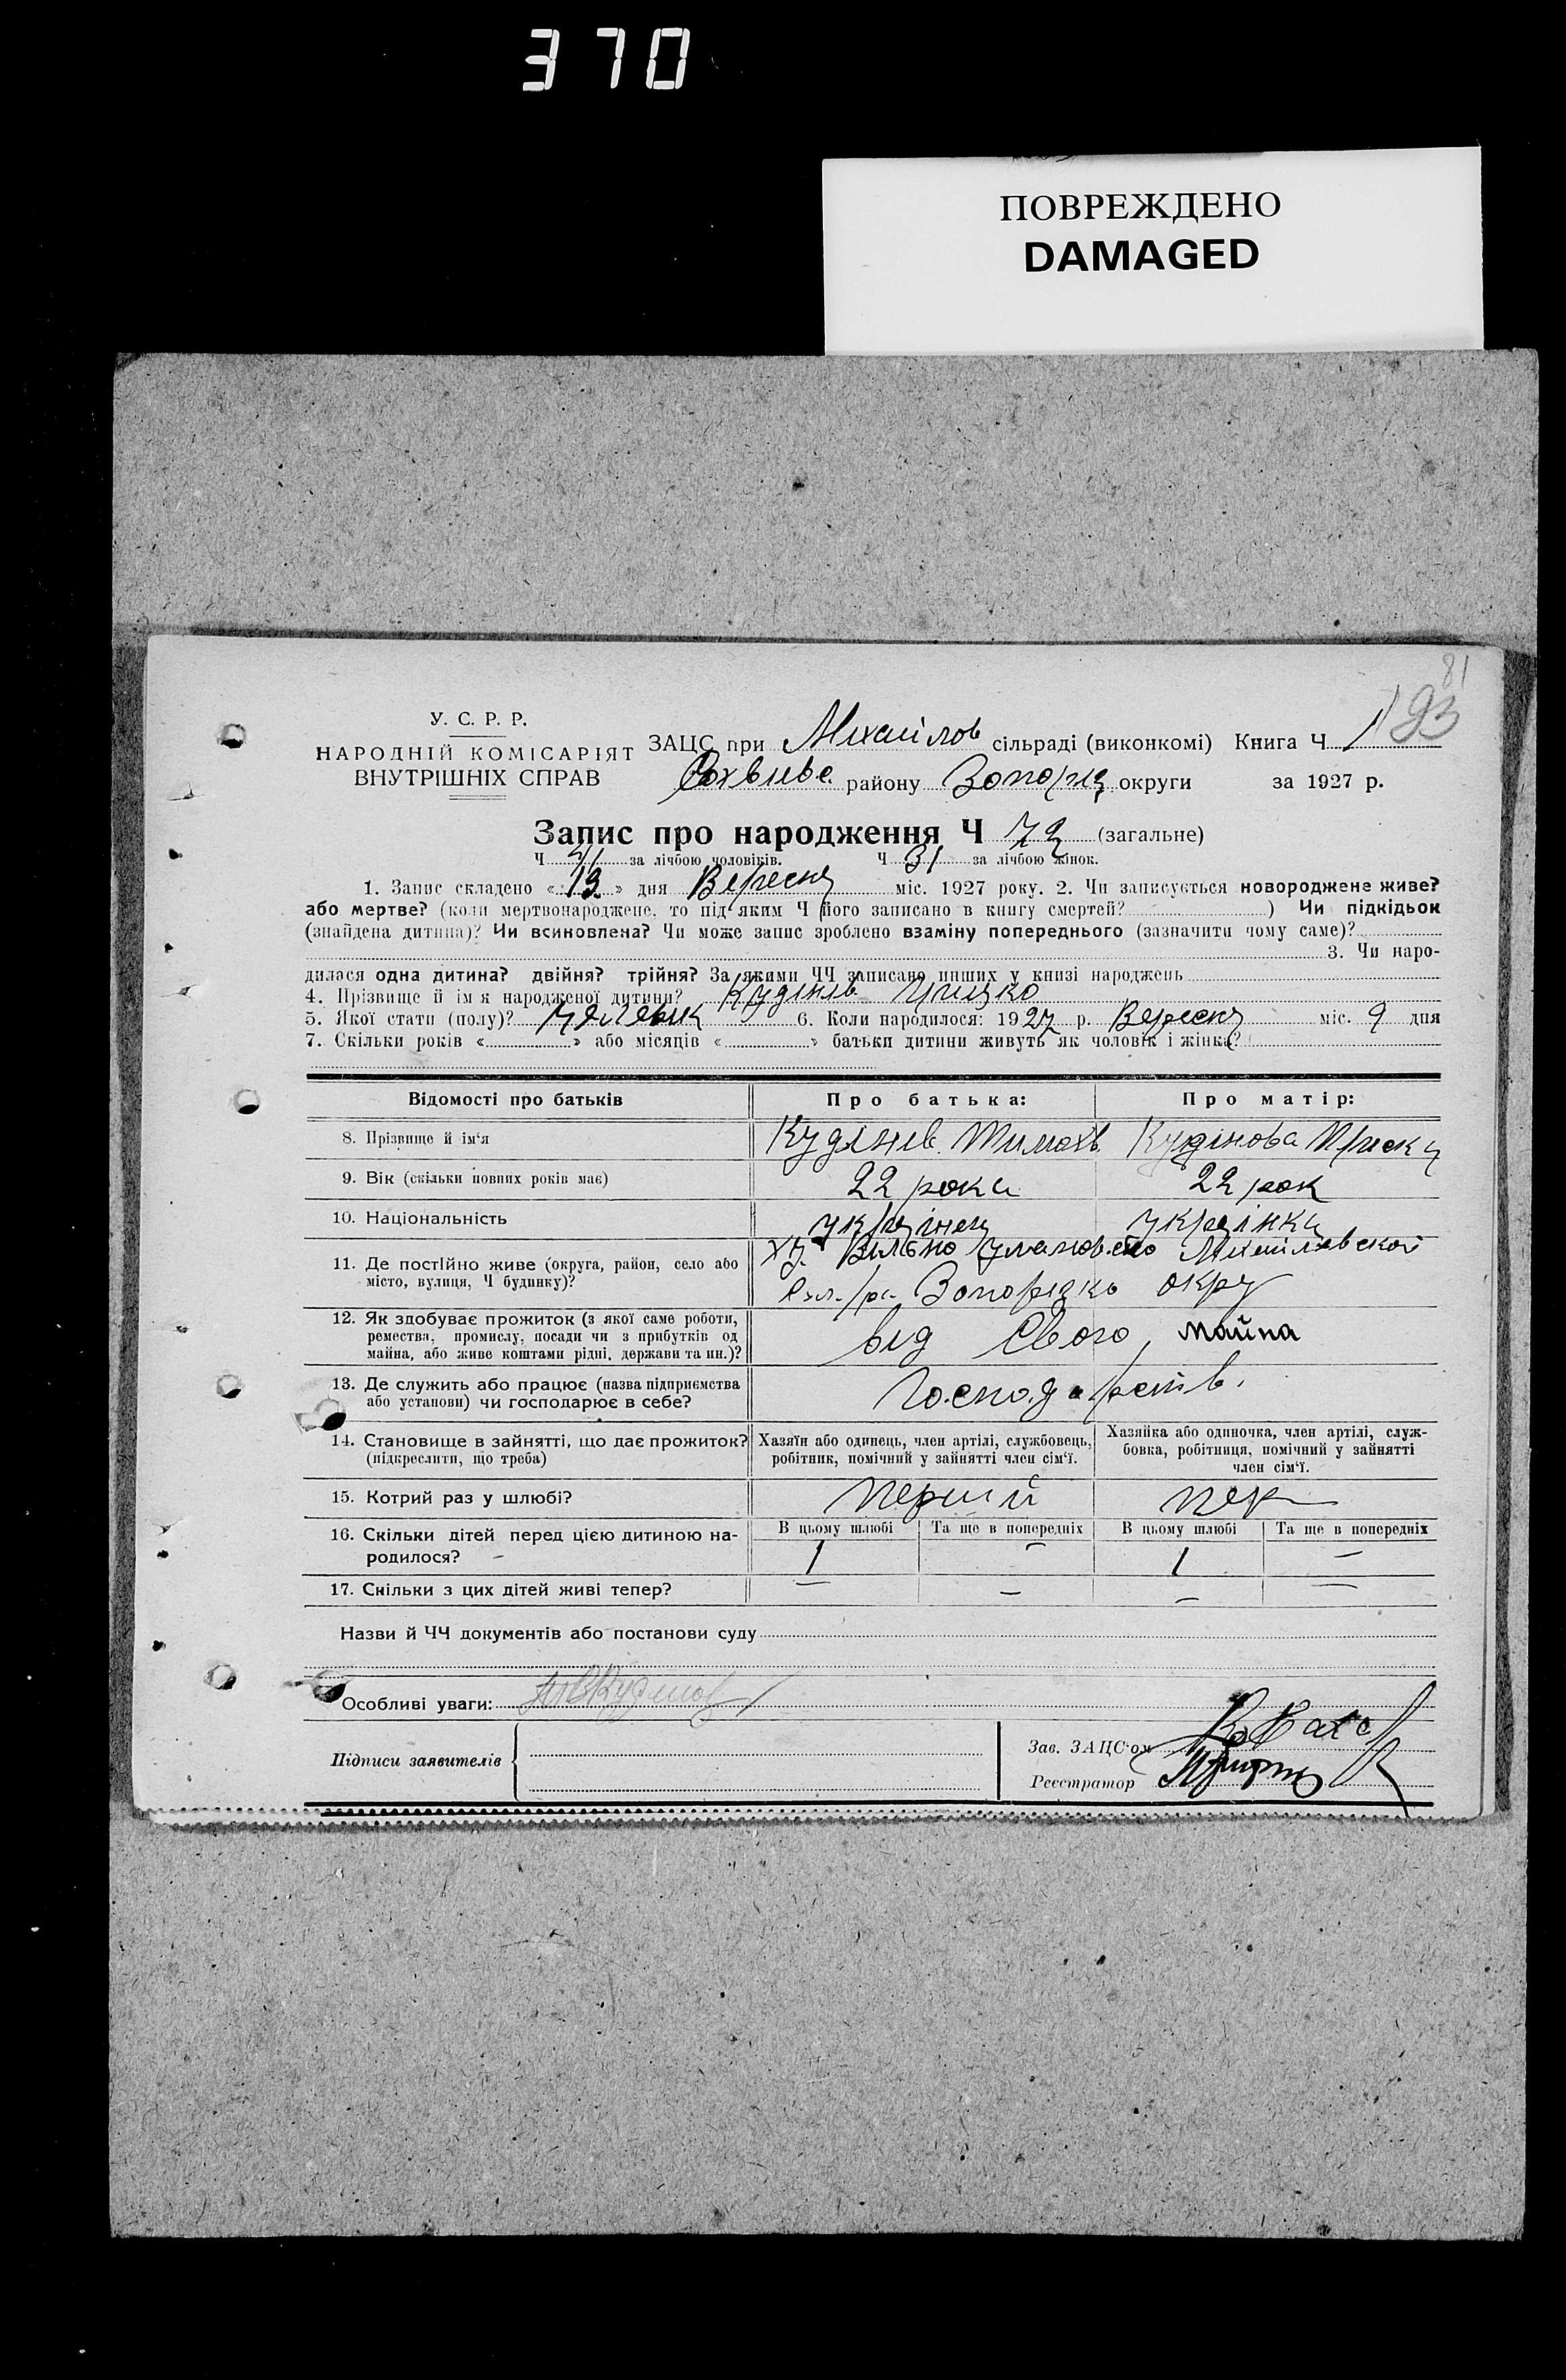 370
ПОВРЕЖДЕНО
DAMAGED
81
93
У. С. Р. Р.
НАРОДНІЙ КОМІСАРІЯТ
ВНУТРІШНІХ СПРАВ
ЗАЦС при Михайлов сільраді (виконкомі) Книга Ч 1
району округи за 1927 р.
Запис про народження Ч 72 (загальне)
Ч 41 за лічбою чоловіків. Ч 31 за лічбою жінок.
1. Запис складено «13» дня Вересня міс. 1927 року. 2. Чи записується новороджене живе?
або мертве? (коли мертвонароджене, то під яким Ч його записано в книгу смертей? ) Чи підкідьок
(знайдена дитина)? Чи всиновлена? Чи може запис зроблено взаміну попереднього (зазначити чому саме)?
3. Чи наро-
дилася одна дитина? двійня? трійня? За якими ЧЧ записано инших у книзі народжень
4. Прізвище й ім'я народженої дитини? Кудінів Грицко
5. Якої стати (полу)? 6. Коли народилося: 1927 р. Вересня міс. 9 дня
7. Скільки років « » або місяців « » батьки дитини живуть як чоловік і жінка?
Відомості про батьків Про батька: Про матір:
8. Прізвище й ім'я Кудінів Тимохв. Кудінова Приска
9. Вік (скільки повних років має) 22 роки 22 рок
10. Національність українец українка
11. Де постійно живе (округа, район, село або
місто, вулиця, Ч будинку)?
ху. Вільно Улановско Михайлавской
Запорізко окру
12. Як здобуває прожиток (з якої саме роботи,
ремества, промислу, посади чи з прибутків од
майна, або живе коштами рідні, держави та ин.)?
від Свого майна
13. Де служить або працює (назва підприємства
або установи) чи господарює в себе?
14. Становище в зайнятті, що дає прожиток?
(підкреслити, що треба)
Хазяїн або одинець, член артілі, службовець,
робітник, помічний у зайнятті член сім'ї.
Хазяйка або одиночка, член артілі, служ-
бовка, робітниця, помічний у зайнятті
член сім'ї.
15. Котрий раз у шлюбі? перший пер
16. Скільки дітей перед цією дитиною на-
родилося?
В цьому шлюбі Та ще в попередніх В цьому шлюбі Та ще в попередніх
1 — 1 —
17. Скільки з цих дітей живі тепер? — — — —
Назви й ЧЧ документів або постанови суду
Особливі уваги:
Підписи заявителів
Зав. ЗАЦС'ом
Реєстратор